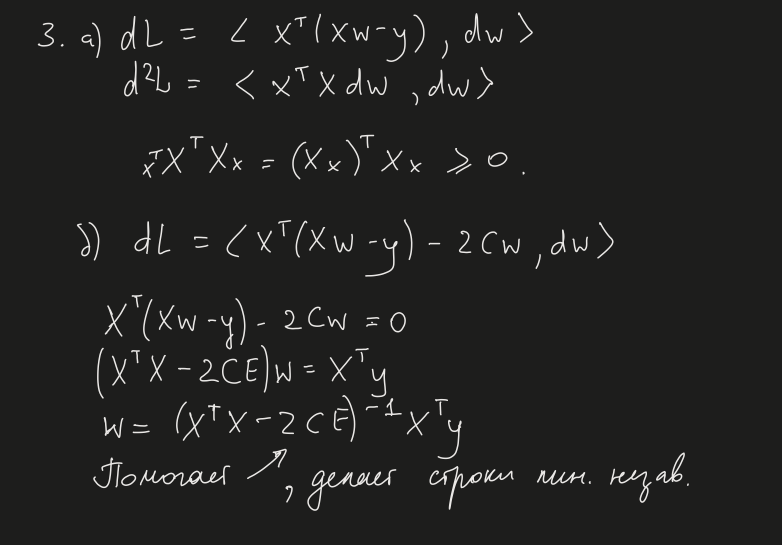 3. а) dL = < X^T(Xw-y), dw >
d²L = < X^T X dw, dw >
x^T X^T X x = (Xx)^T Xx ⩾ 0.
б) dL = < X^T(Xw-y) - 2Cw, dw >
X^T(Xw-y) - 2Cw = 0
(X^T X - 2CE)w = X^T y
w = (X^T X - 2CE)^{-1} X^T y
Помогает ↗, делает строки лин. незав.